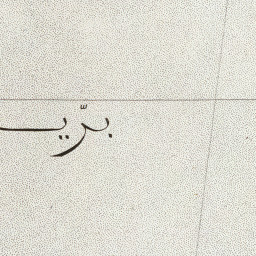 برّيـ